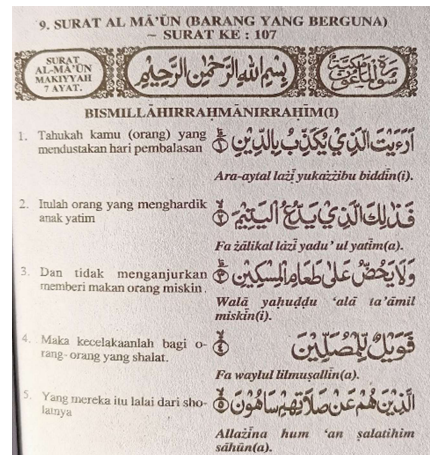 9. SURAT AL MĀ'ŪN (BARANG YANG BERGUNA)
~ SURAT KE : 107
SURAT
AL-MĀ'ŪN
MAKIYYAH
7 AYAT.
بِسْمِ اللهِ الرَّحْمٰنِ الرَّحِيْمِ
سورة الماعون مكية
BISMILLĀHIRRAḤMĀNIRRAḤĪM(I)
1. Tahukah kamu (orang) yang
mendustakan hari pembalasan
اَرَءَيْتَ الَّذِيْ يُكَذِّبُ بِالدِّيْنِ ١
Ara-aytal lażī yukażżibu biddīn(i).
2. Itulah orang yang menghardik
anak yatim
فَذٰلِكَ الَّذِيْ يَدُعُّ الْيَتِيْمَ ٢
Fa żālikal lażī yadu' ul yatīm(a).
3. Dan tidak menganjurkan
memberi makan orang miskin.
وَلَا يَحُضُّ عَلٰى طَعَامِ الْمِسْكِيْنِ ٣
Walā yaḥuḍḍu 'alā ta'āmil
miskīn(i).
4. Maka kecelakaanlah bagi o-
rang-orang yang shalat.
فَوَيْلٌ لِّلْمُصَلِّيْنَ ٤
Fa waylul lilmuṣallīn(a).
5. Yang mereka itu lalai dari sho-
latnya
الَّذِيْنَ هُمْ عَنْ صَلَاتِهِمْ سَاهُوْنَ ٥
Allażīna hum 'an ṣalatihim
sāhūn(a).